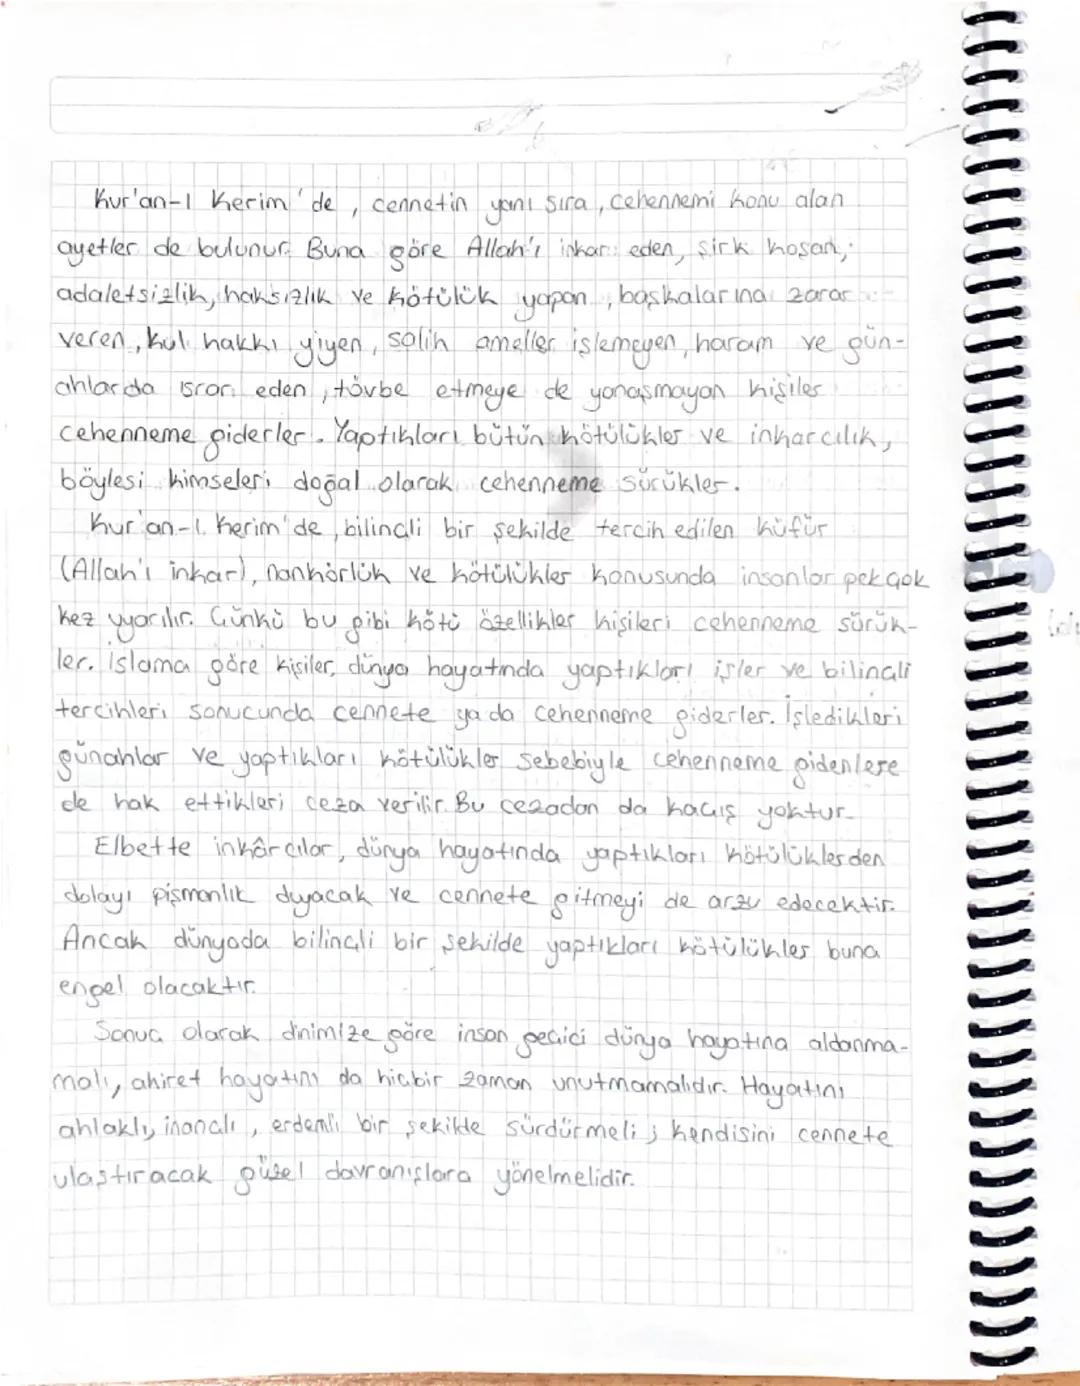 Kur'an-ı Kerim'de, cennetin yanı sıra, cehennemi konu alan
ayetler de bulunur. Buna göre Allah'ı inkar eden, şirk koşan,
adaletsizlik, haksızlık ve kötülük yapan, başkalarına zarar
veren, kul hakkı yiyen, salih ameller işlemeyen, haram ve gün-
ahlarda ısrar eden, tövbe etmeye de yanaşmayan kişiler
cehenneme giderler. Yaptıkları bütün kötülükler ve inkarcılık,
böylesi kimseleri doğal olarak cehenneme sürükler.
Kur'an-ı Kerim'de, bilinçli bir şekilde tercih edilen küfür
(Allah'ı inkar), nankörlük ve kötülükler konusunda insanlar pek çok
kez uyarılır. Çünkü bu gibi kötü özellikler kişileri cehenneme sürük-
ler. İslama göre kişiler, dünya hayatında yaptıkları işler ve bilinçli
tercihleri sonucunda cennete ya da cehenneme giderler. İşledikleri
günahlar ve yaptıkları kötülükler sebebiyle cehenneme gidenlere
de hak ettikleri ceza verilir. Bu cezadan da kaçış yoktur.
Elbette inkârcılar, dünya hayatında yaptıkları kötülüklerden
dolayı pişmanlık duyacak ve cennete gitmeyi de arzu edecektir.
Ancak dünyada bilinçli bir şekilde yaptıkları kötülükler buna
engel olacaktır.
Sonuc olarak dinimize göre insan geçici dünya hayatına aldanma-
malı, ahiret hayatını da hiçbir zaman unutmamalıdır. Hayatını
ahlaklı, inançlı, erdemli bir şekilde sürdürmeli; kendisini cennete
ulaştıracak güzel davranışlara yönelmelidir.